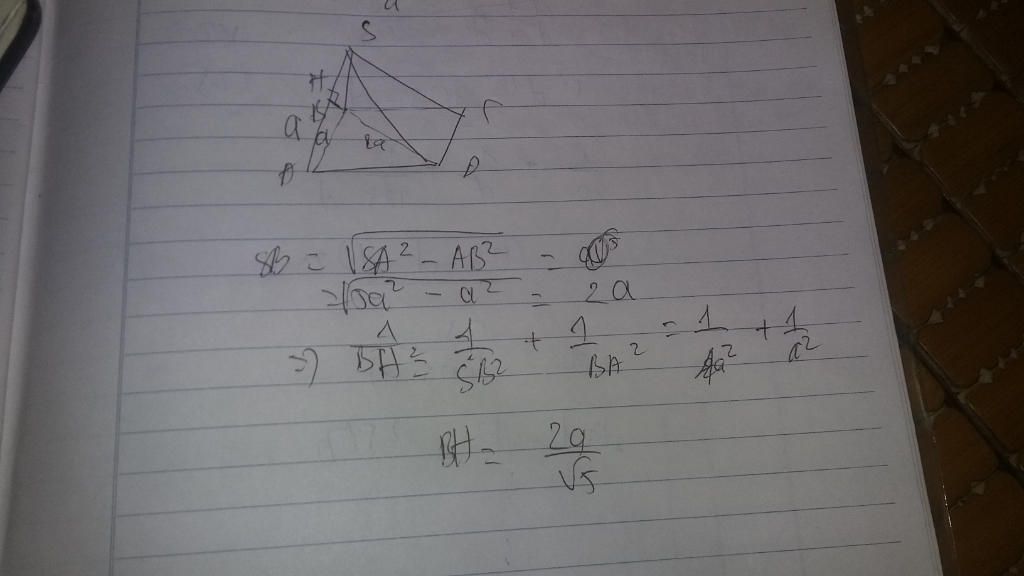 a
S
H
B
C
a
a
2a
A
D
SB = √SA² - AB² = a√5
= √5a² - a² = 2a
=) 1/BH² = 1/SB² + 1/BA² = 1/4a² + 1/a²
BH = 2a/√5